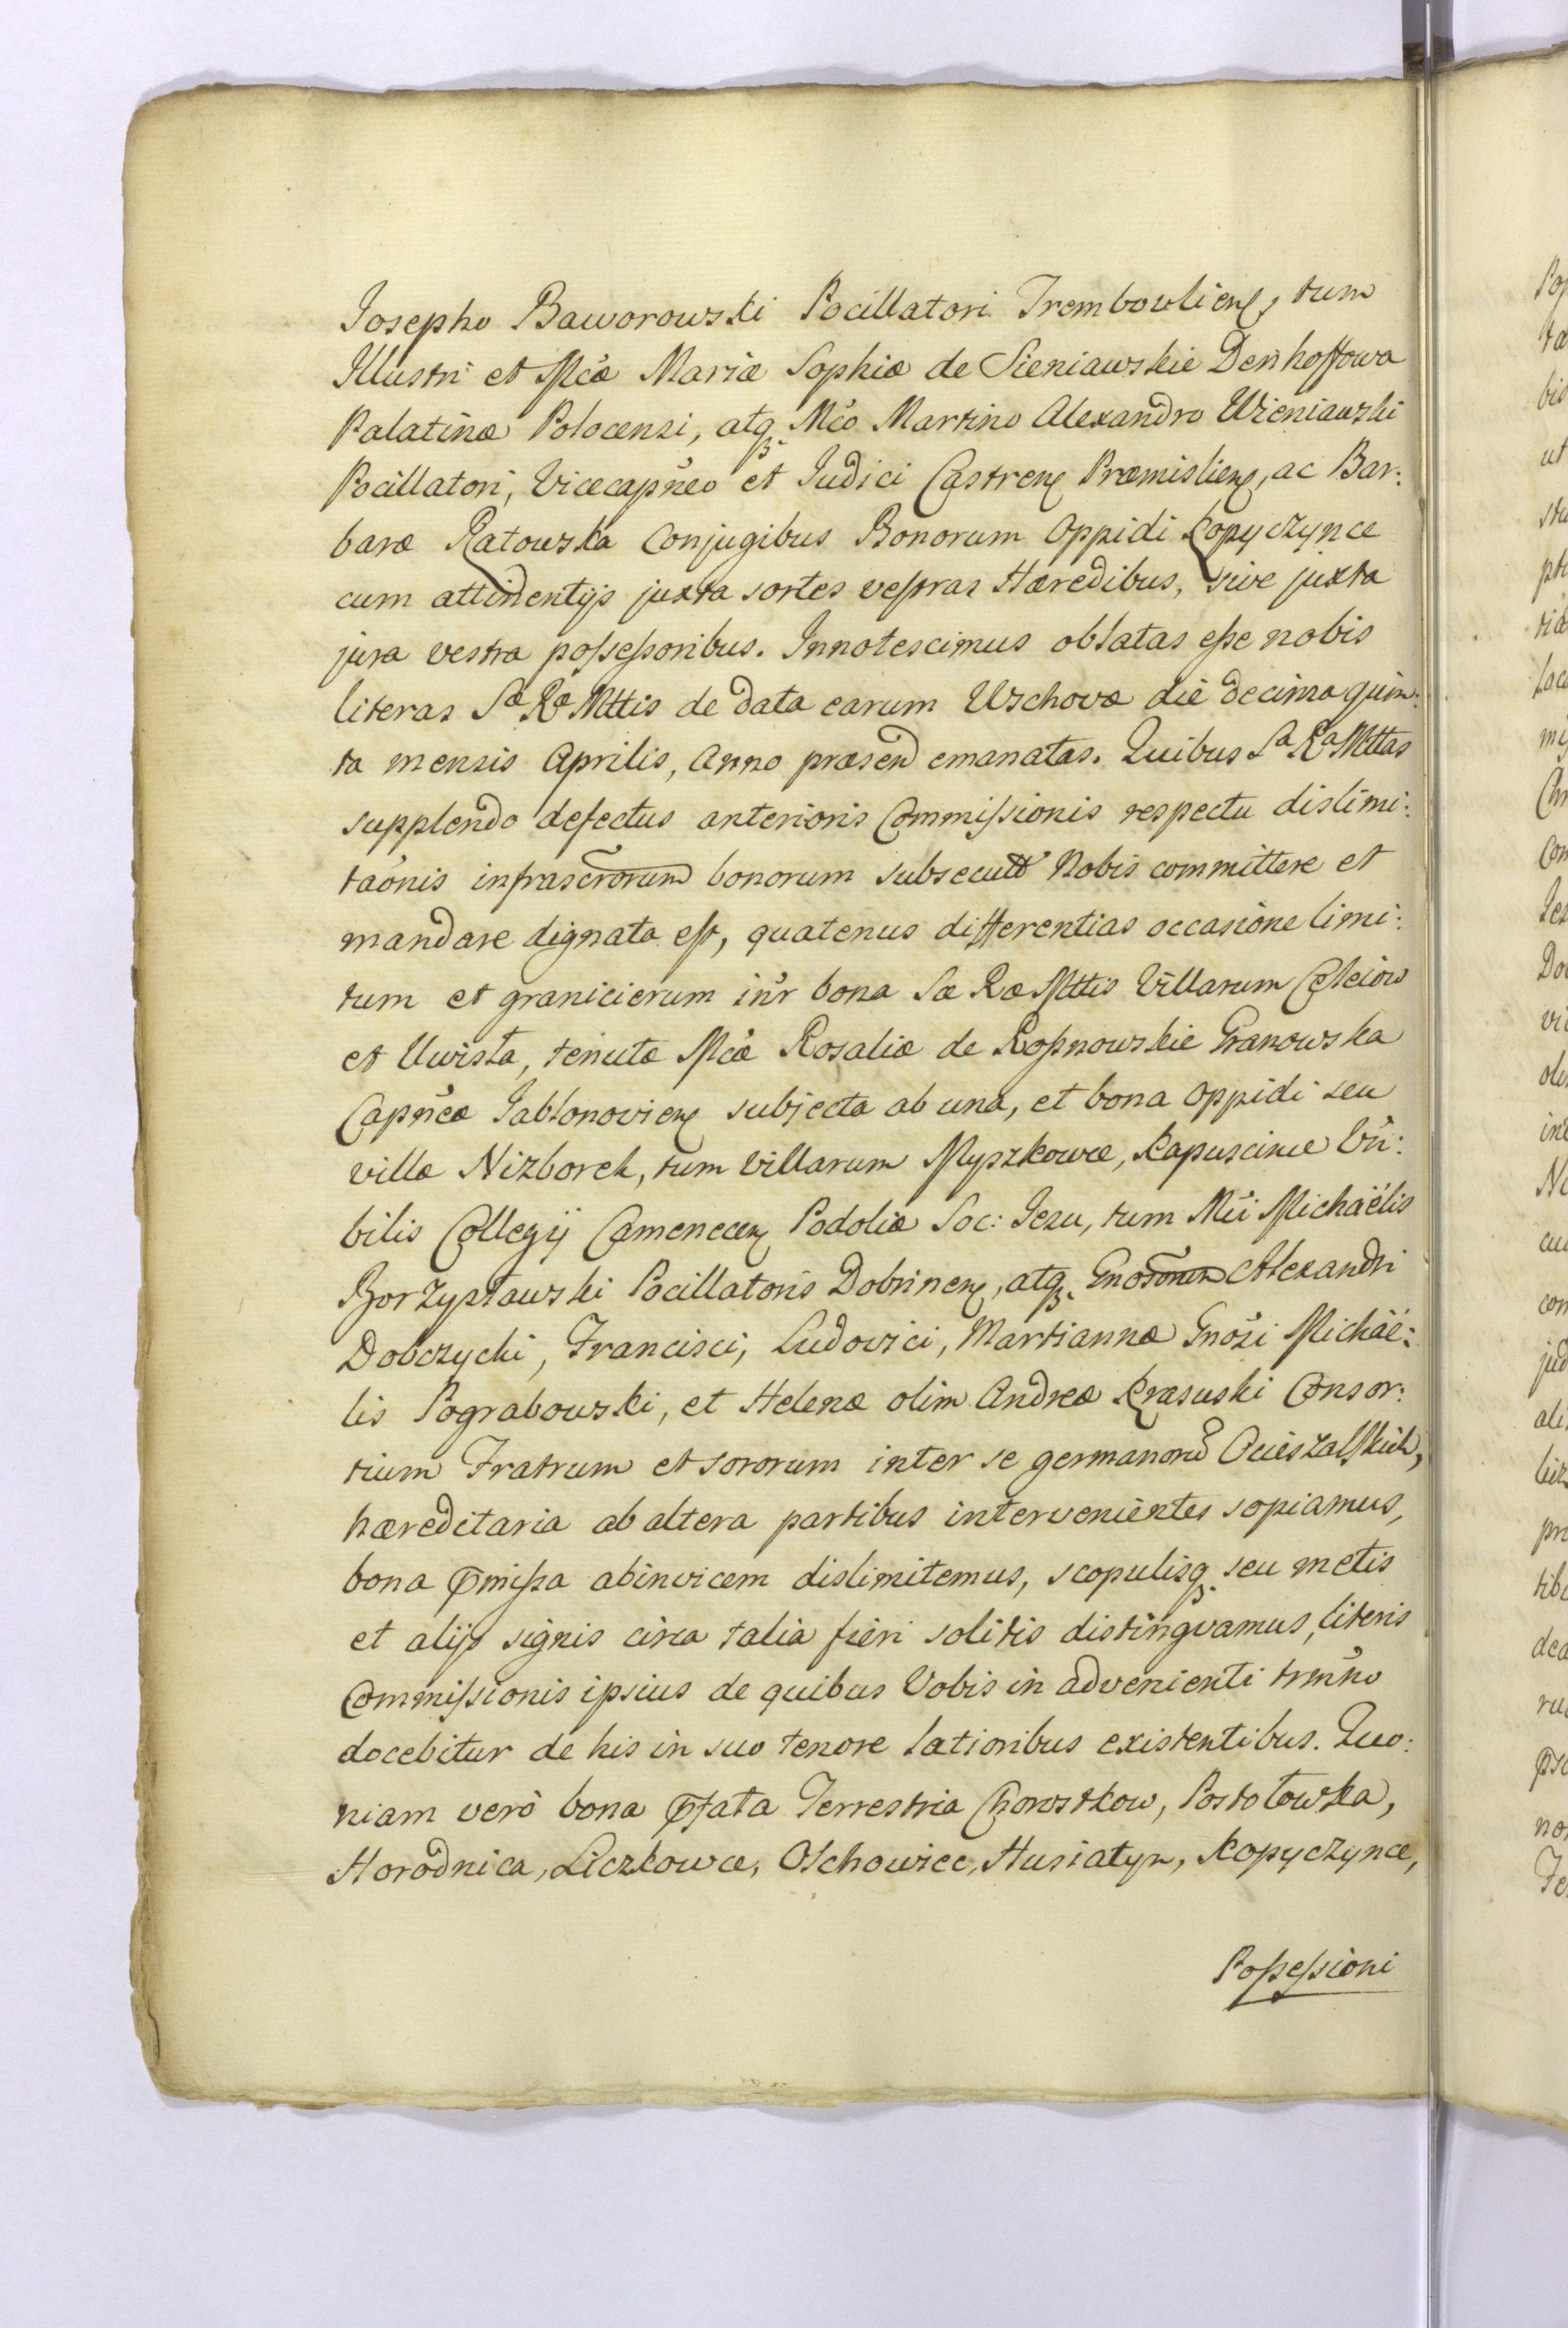 Josepho Baworowski Pocillatori Trembowlieñ, tum
Illustri et Mcæ Mariæ Sophiæ de Sieniawskie Denhoffowa
Palatinæ Polocensi, atq̃ Mco Martino Alexandro Wieniawski
Pocillatori, Vicecapneo et Judici Castreñ Præmislieñ, ac Bar:
baræ Ratowska Conjugibus Bonorum Oppidi Kopyczynce
cum attinentijs juxta sortes vestras Hæredibus, sive juxta
jura vestra possessoribus. Innotescimus oblatas esse nobis
literas Sæ Ræ Mttis de data earum Wschovæ die decima quin:
ta mensis Aprilis, Anno præsend emanatas. Quibus Sa Ra Mttas
supplendo defectus anterioris Commissionis respectu dislimi:
taonis infrascrorum bonorum subsecutæ Nobis committere et
mandare dignata est, quatenus differentias occasione limi:
tum et granicierum inr bona Sæ Ræ Mttis Villarum Celeiow
et Uwisła, tenutæ Mcæ Rosaliæ de Rosnowskie Granowska
Capneæ Jablonovieñ subjecta ab una, et bona Oppidi seu
villæ Nizborek, tum Villarum Myszkowce, Kapuscince Vñ:
bilis Collegij Cameneceñ Podoliæ Soc: Jesu, tum Mci Michaëlis
Borzysławski Pocillatoris Dobrineñ, atq̃ Gnosorum Alexandri
Dobczychi, Francisci, Ludovici, Martiannæ Gnosi Michaë:
lis Pograbowski, et Helenæ olim Andreæ Krasuski Consor:
tium Fratrum et sororum inter se germanorũ Owieszalskich,
hæreditaria ab altera partibus intervenientes sopiamus,
bona pmissa abinvicem dislimitemus, scopulisq̃ seu metis
et alijs signis circa talia fieri solitis distingvamus, literis
Commissionis ipsius de quibus Vobis in advenienti trmno
docebitur de his in suo tenore lationibus existentibus. Quo:
niam verò bona pfata Terrestria Chorostkow, Postołowka,
Horodnica, Liczkowce, Olchowiec, Husiatyn, Kopyczynce,
Possessioni